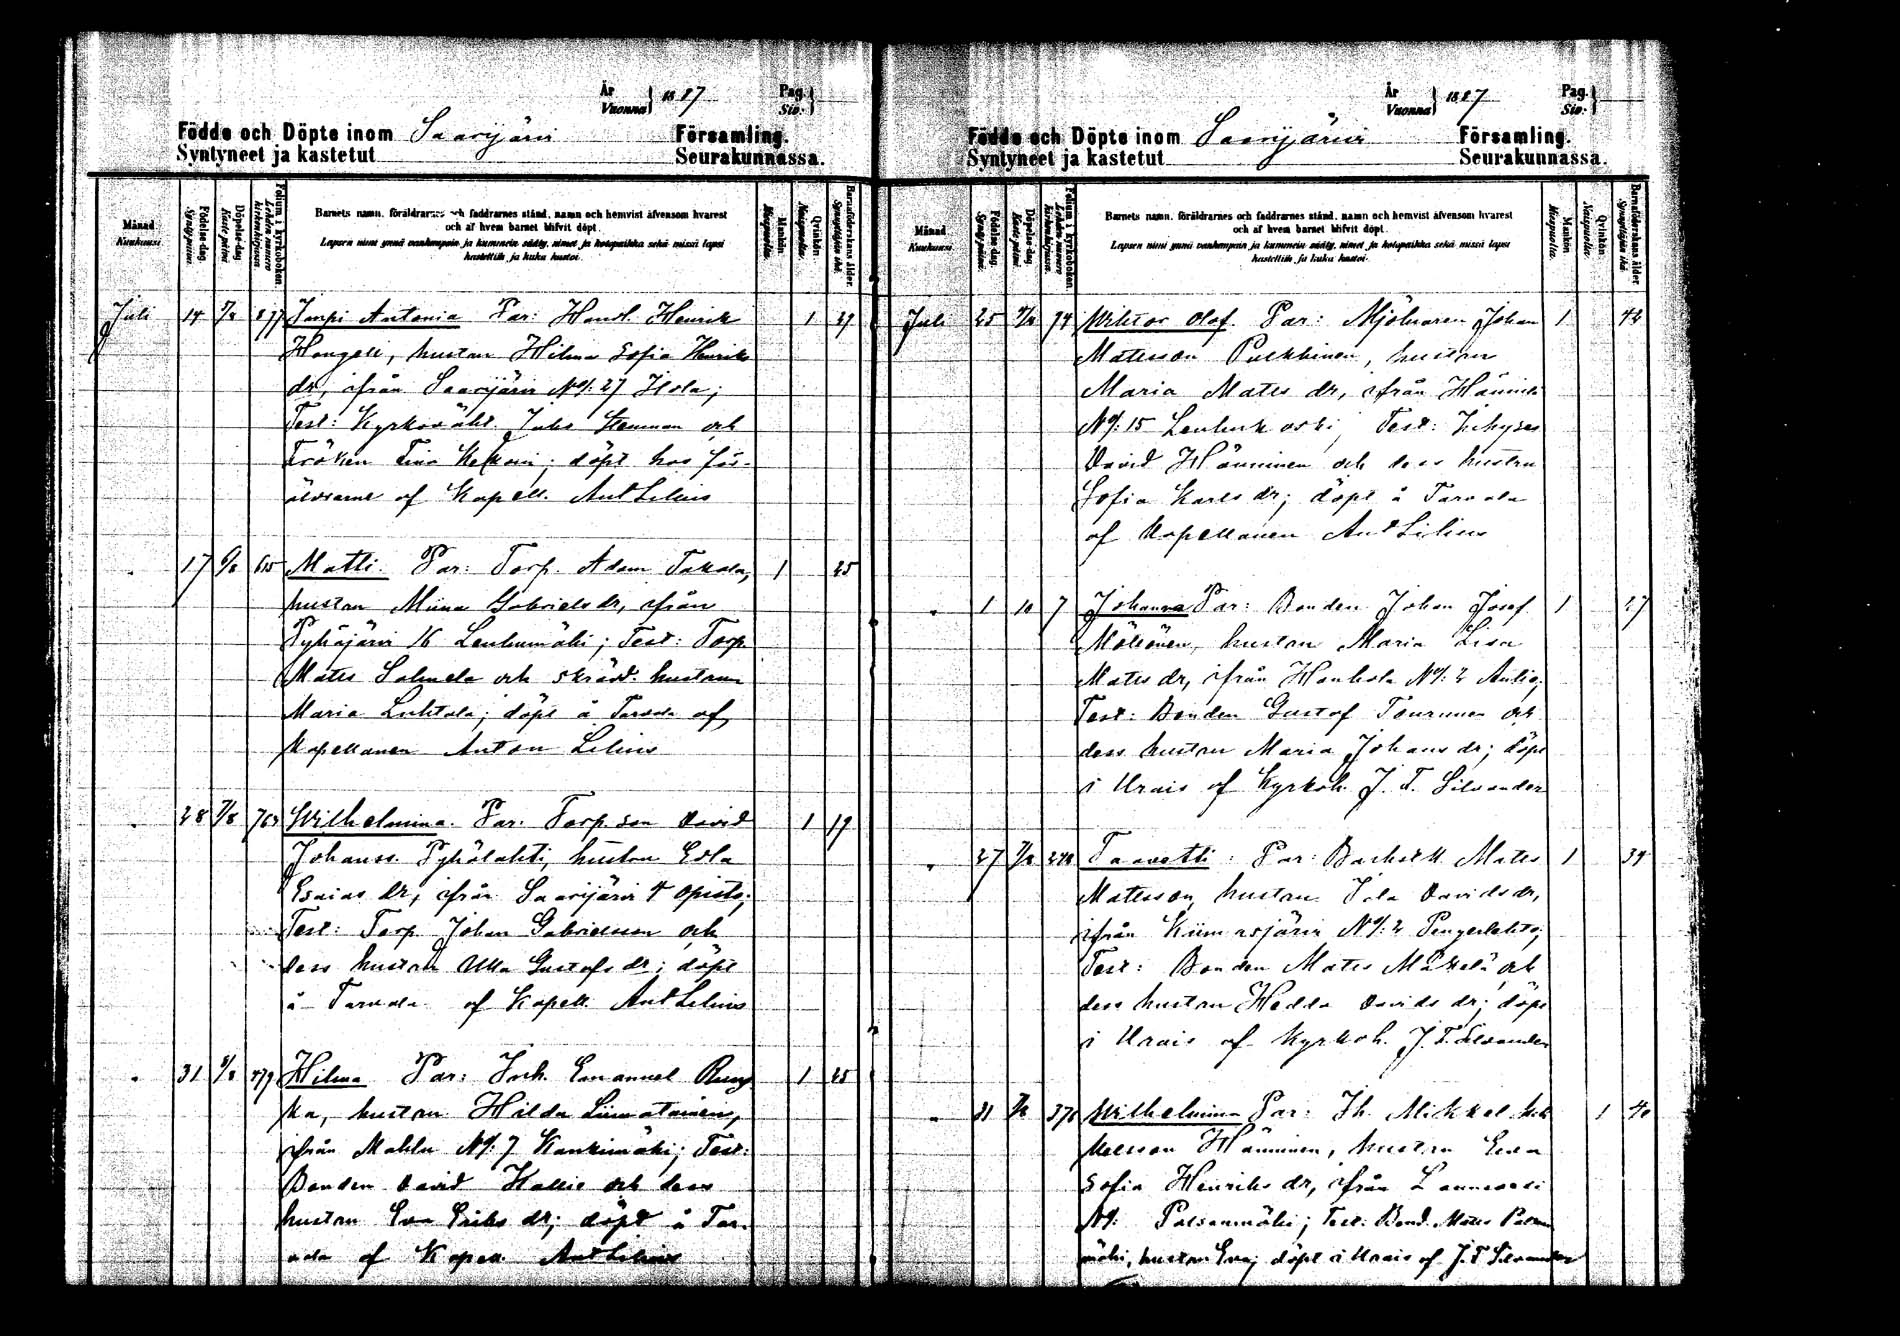 År
Vuonna } 1887
Pag.
Siv. }
Födde och Döpte inom Saarijärvi Församling.
Syntyneet ja kastetut Seurakunnassa.
Månad
Kuukausi
Födelse-dag.
Synty-päivä.
Döpelse-dag
Kaste-päivä
Folium i kyrkoboken.
Lehden numero
kirkonkirjassa
Barnets namn, föräldrarnes och faddrarnes stånd, namn och hemvist äfvensom hvarest
och af hvem barnet blifvit döpt.
Lapsen nimi ynnä vanhempain ja kummein sääty, nimet ja kotopaikka sekä missä lapsi
kastettiin ja kuka kastoi.
Mankön
Miespuolia.
Qvinkön
Naispuolia.
Barnaföderskans ålder.
Synnyttäjän ikä.
Juli 14 877 Impi Antonia Par: Handl. Henrik 1 29
Hougell, hustrun Hilma Sofia Henriks
dr, ifrån Saarijärvi No: 27 Isola;
Test: Kyrkoväkt. Johs Stenman och
Fröken Fina; döpt hos för-
äldrarne af Kapell. Ant Lilius
17 Matti. Par: Torp. Adam Takala, 1 25
hustrun Miina Gabriels dr, ifrån
Pyhäjärvi 16 Lenhumäki; Test: Torp.
Mats Salmela och skrädd. hustrun
Maria Luhtala; döpt å Tarvala af
Kapellanen Anton Lilius
28 7/8 763 Wilhelmina. Par: Torp. son David 1 19
Johanss. Pyhälahti, hustrun Edla
Esaias dr, ifrån Saarijärvi 4 Opisto;
Test: Torp. Johan Gabrielsson och
dess hustru Ulla Gustafs dr; döpt
å Tarvala af Kapell. Ant Lilius
31 479 Hilma Par: Inh. Emanuel Rung 1 25
ka, hustrun Hilda Liimatainen,
ifrån Mahlu No: 7 Kankimäki; Test:
Bonden David Kallio och dess
hustru Eva Eriks dr; döpt å Tar-
vala af Kapell. Ant Lilius
År
Vuonna } 1887
Pag.
Siv. }
Födde och Döpte inom Saarijärvi Församling.
Syntyneet ja kastetut Seurakunnassa.
Månad
Kuukausi
Födelse-dag.
Synty-päivä.
Döpelse-dag
Kaste-päivä
Folium i kyrkoboken.
Lehden numero
kirkonkirjassa.
Barnets namn, föräldrarnes och faddrarnes stånd, namn och hemvist äfvensom hvarest
och af hvem barnet blifvit döpt.
Lapsen nimi ynnä vanhempain ja kummein sääty, nimet ja kotopaikka sekä missä lapsi
kastettiin ja kuka kastoi.
Mankön
Miespuolia.
Qvinkön
Naispuolia.
Barnaföderskans ålder
Synnyttäjän ikä.
Juli 25 74 Wiktor Olof. Par: Mjölnaren Johan 1 42
Matsson Pulkkinen, hustrun
Maria Mats dr, ifrån Hännilä
No: 15 Leuhunkoski; Test: Inhyses
David Hänninen och dess hustru
Sofia Karls dr; döpt å Tarvala
af Kapellanen Ant Lilius
1 10 7 Johanna Par: Bonden Johan Josef 1 27
Mötönen, hustrun Maria Lisa
Mats dr, ifrån Hankola No: 2 Antio;
Test: Bonden Gustaf Tourunen och
dess hustru Maria Johans dr; döpt
i Urais af Kyrkoh. J. F. Silvander
27 Taavetti: Par: Mats 1 34
Matsson, hustrun Ida Davids dr,
ifrån Kiimasjärvi No: 2 Pengerlahto;
Test: Bonden Mats Mäkelä och
dess hustru Hedda Davids dr; döpt
i Urais af Kyrkoh. J. F. Silvander
31 376 Wilhelmina Par: Ih. Mikkel Mik 1 40
kelsson Hänninen, hustrun Eeva
Sofia Henriks dr, ifrån Lannevesi
No: Palsanmäki; Test: Bond. Mats Palsan
mäki, hustrun Eva; döpt i Urais af J. F. Silvander